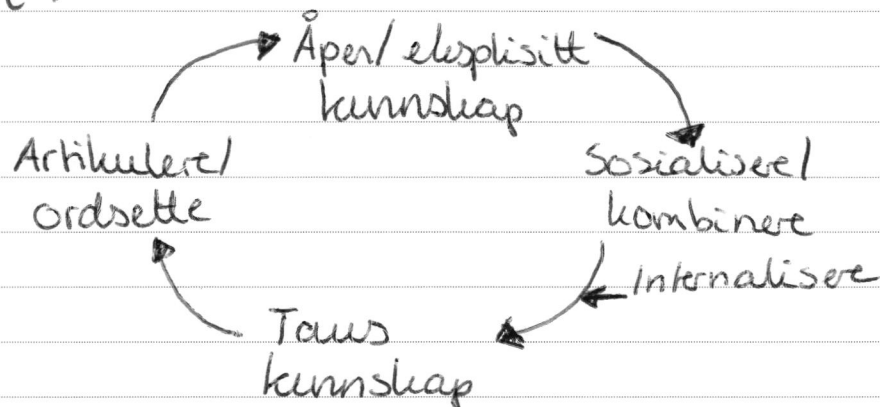 Åpen/eksplisitt
kunnskap
Artikulere/
ordsette
Sosialisere/
kombinere
Internalisere
Taus
kunnskap